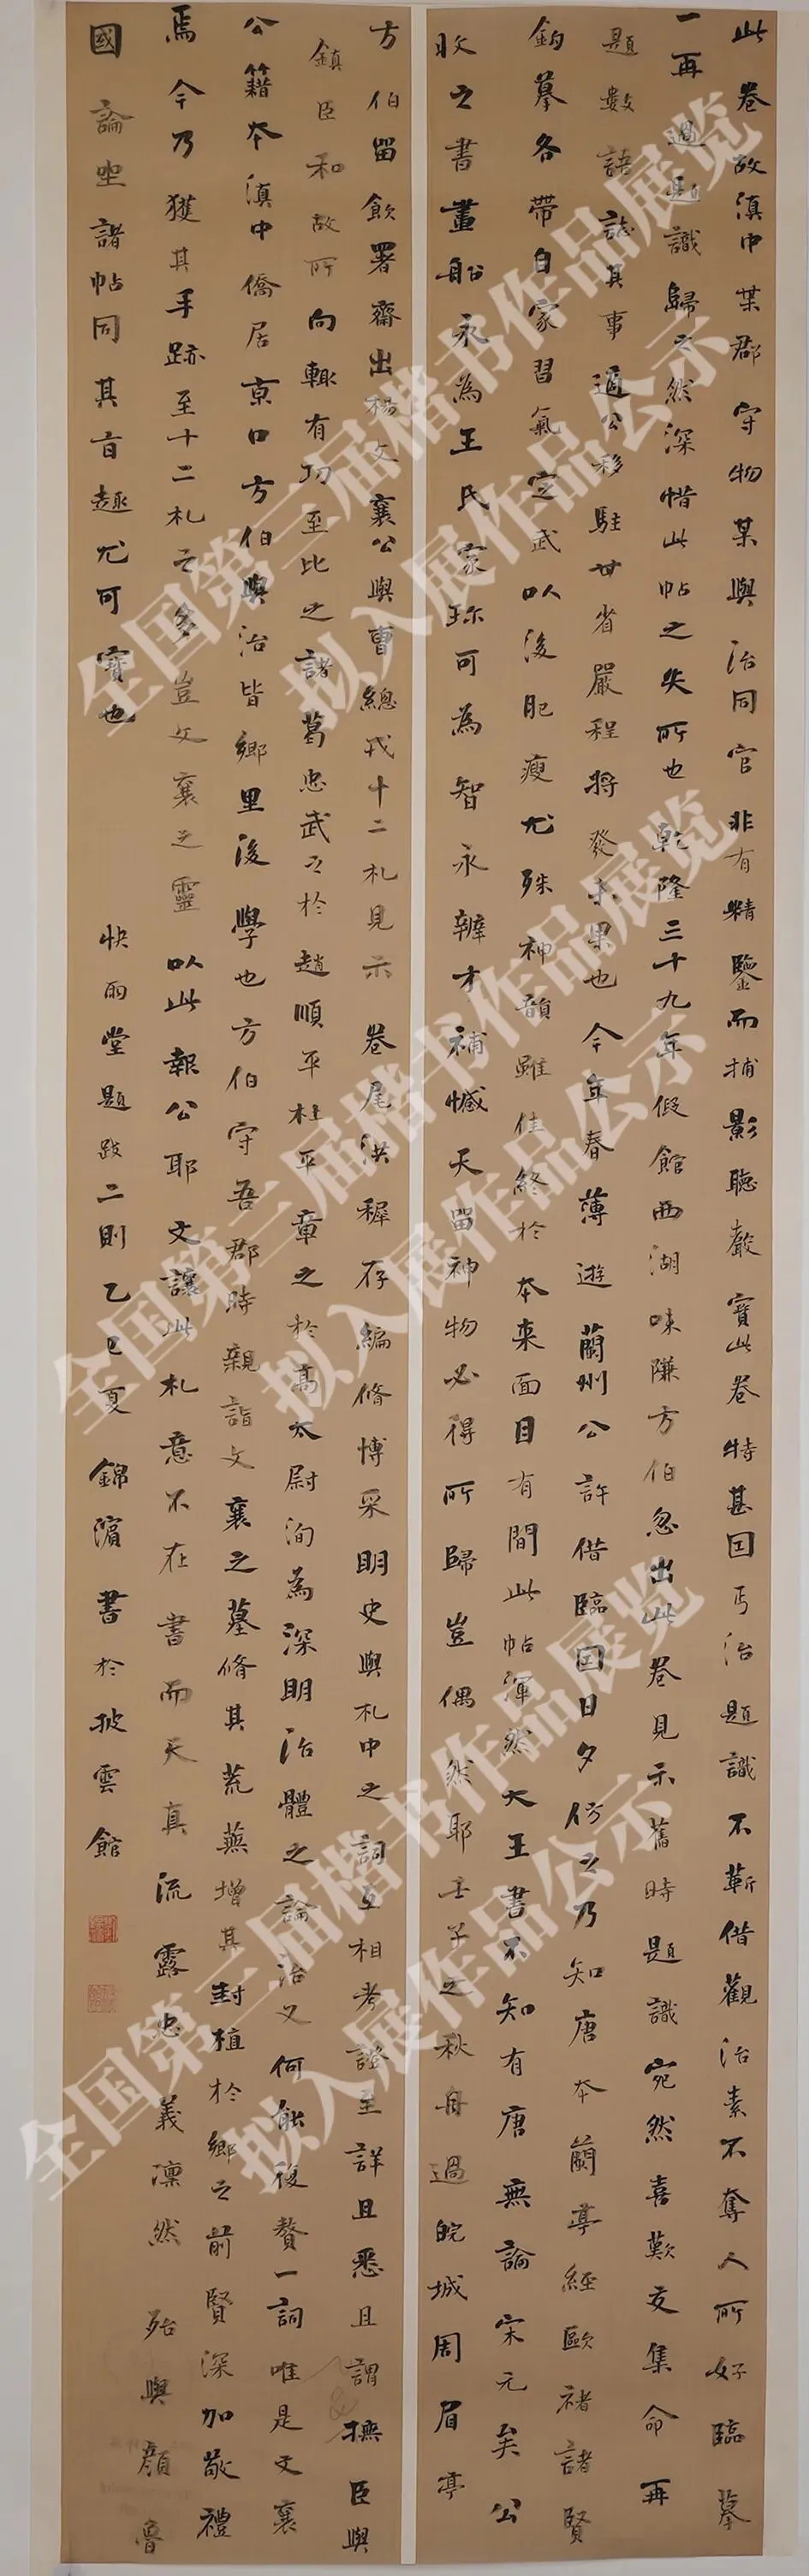 此卷故滇中某郡守物某與治同官非有精鑒而捕影聽聲寶此卷特甚因丐治題識不蘄借觀治素不奪人所好臨摹
一再過題識歸之然深惜此帖之失所也乾隆三十九年假館西湖味隒方伯忽出此卷見示舊時題識宛然喜歎交集命再
題數語誌其事適公移駐甘省嚴程將發未果也今年春薄遊蘭州公許借臨因日夕仿之乃知唐本蘭亭經歐褚諸賢
鉤摹各帶自家習氣定武以後肥瘦尤殊神韻雖佳終於本来面目有間此帖渾然大王書不知有唐無論宋元矣公
收之書畫船永為王氏家珎可為智永辨才補憾天留神物必得所歸豈偶然耶壬子之秋舟過皖城周眉亭
方伯留飲署齋出楊文襄公與曹總戎十二札見示卷尾洪稺存編脩博采明史與札中之詞互相考證至詳且悉且謂撫臣與
鎮臣和故所向輒有功至比之諸葛忠武之於趙順平杜平章之於高太尉洵為深明治體之論治又何能復贅一詞唯是文襄
公籍本滇中僑居京口方伯與治皆鄉里後學也方伯守吾郡時親詣文襄之墓脩其荒蕪增其封植於鄉之前賢深加敬禮
焉今乃獲其手跡至十二札之多豈文襄之靈以此報公耶文讓此札意不在書而天真流露忠義凜然殆與顏魯
國論坐諸帖同其旨趣尤可寶也
快雨堂題跋二則乙巳夏錦濱書於披雲館
全国第三届楷书作品展览
拟入展作品公示
全国第三届楷书作品展览
拟入展作品公示
全国第三届楷书作品展览
拟入展作品公示